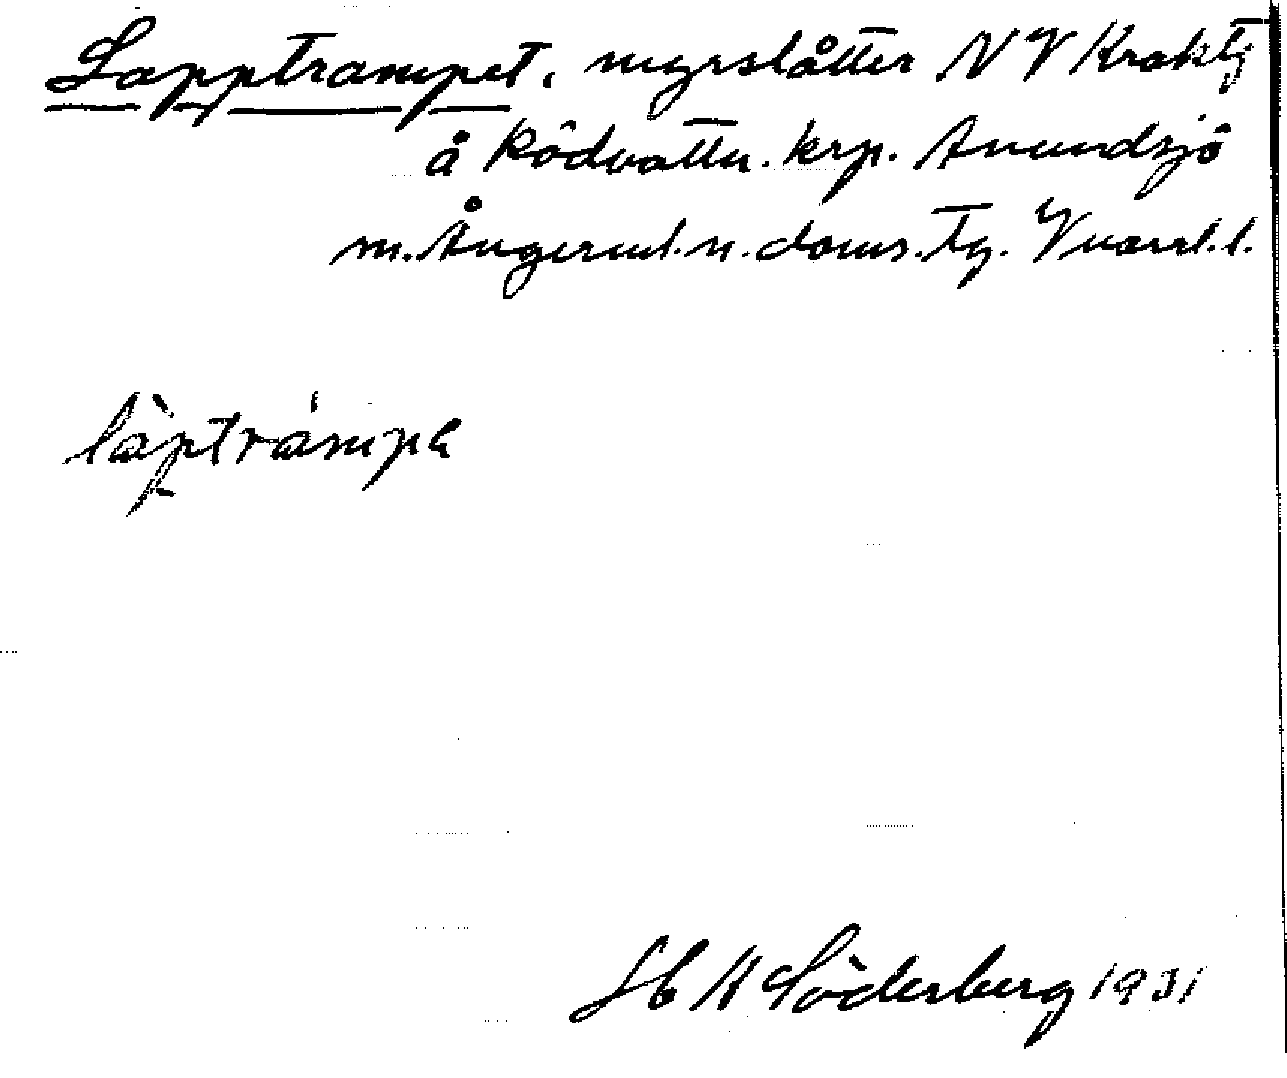 Lapptrampet, myrslåtter NV Kroktj
å Rödvattn. krp. Anundsjö
m. Ångerml. n. doms. Tg. V norrl. l.
làptrámpa
H Söderberg 1931